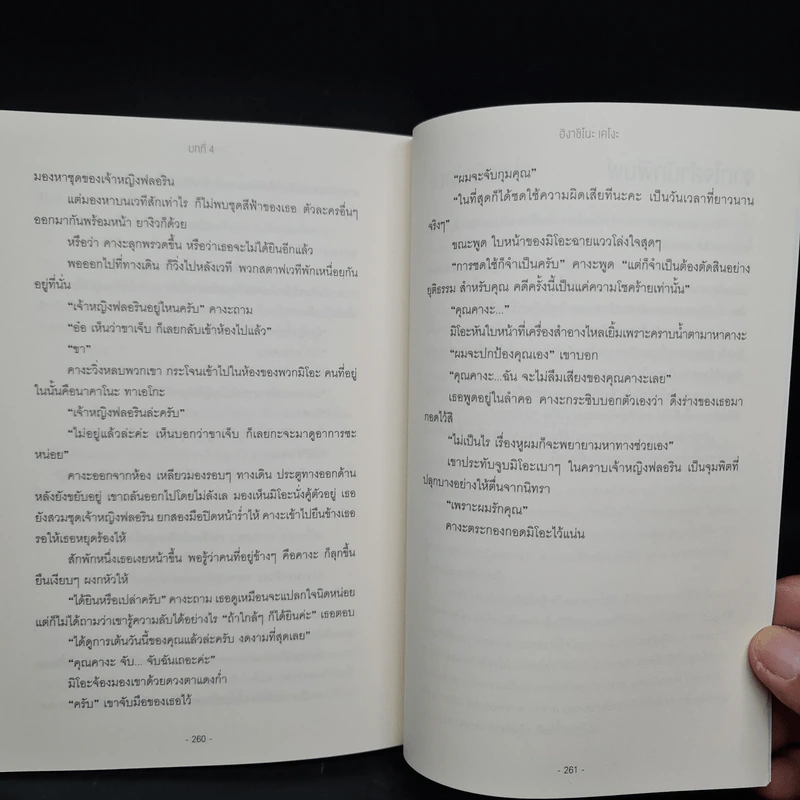 บทที่ 4
มองหาชุดของเจ้าหญิงฟลอริน
แต่มองหาบนเวทีสักเท่าไร ก็ไม่พบชุดสีฟ้าของเธอ ตัวละครอื่นๆ
ออกมากันพร้อมหน้า ยางิวก็ด้วย
หรือว่า คางะลุกพรวดขึ้น หรือว่าเธอจะไม่ได้ยินอีกแล้ว
พอออกไปที่ทางเดิน ก็วิ่งไปหลังเวที พวกสตาฟเวทีพักเหนื่อยกัน
อยู่ที่นั่น
“เจ้าหญิงฟลอรินอยู่ไหนครับ” คางะถาม
“อ๋อ เห็นว่าขาเจ็บ ก็เลยกลับเข้าห้องไปแล้ว”
“ขา”
คางะวิ่งหลบพวกเขา กระโจนเข้าไปในห้องของพวกมิโอะ คนที่อยู่
ในนั้นคือนาคาโนะ ทาเอโกะ
“เจ้าหญิงฟลอรินล่ะครับ”
“ไม่อยู่แล้วล่ะค่ะ เห็นบอกว่าขาเจ็บ ก็เลยกะจะมาดูอาการซะ
หน่อย”
คางะออกจากห้อง เหลียวมองรอบๆ ทางเดิน ประตูทางออกด้าน
หลังยังขยับอยู่ เขาถลันออกไปโดยไม่ลังเล มองเห็นมิโอะนั่งคู้ตัวอยู่ เธอ
ยังสวมชุดเจ้าหญิงฟลอริน ยกสองมือปิดหน้าร่ำไห้ คางะเข้าไปยืนข้างเธอ
รอให้เธอหยุดร้องไห้
สักพักหนึ่งเธอเงยหน้าขึ้น พอรู้ว่าคนที่อยู่ข้างๆ คือคางะ ก็ลุกขึ้น
ยืนเงียบๆ ผงกหัวให้
“ได้ยินหรือเปล่าครับ” คางะถาม เธอดูเหมือนจะแปลกใจนิดหน่อย
แต่ก็ไม่ได้ถามว่าเขารู้ความลับได้อย่างไร “ถ้าใกล้ๆ ก็ได้ยินค่ะ” เธอตอบ
“ได้ดูการเต้นวันนี้ของคุณแล้วล่ะครับ งดงามที่สุดเลย”
“คุณคางะ จับ... จับฉันเถอะค่ะ”
มิโอะจ้องมองเขาด้วยดวงตาแดงก่ำ
“ครับ” เขาจับมือของเธอไว้
- 260 -
ฮิงาชิโนะ เคโงะ
“ผมจะจับกุมคุณ”
“ในที่สุดก็ได้ชดใช้ความผิดเสียทีนะคะ เป็นวันเวลาที่ยาวนาน
จริงๆ”
ขณะพูด ใบหน้าของมิโอะฉายแววโล่งใจสุดๆ
“การชดใช้ก็จำเป็นครับ” คางะพูด “แต่ก็จำเป็นต้องตัดสินอย่าง
ยุติธรรม สำหรับคุณ คดีครั้งนี้เป็นแค่ความโชคร้ายเท่านั้น”
“คุณคางะ...”
มิโอะหันใบหน้าที่เครื่องสำอางไหลเยิ้มเพราะคราบน้ำตามาหาคางะ
“ผมจะปกป้องคุณเอง” เขาบอก
“คุณคางะ...ฉัน จะไม่ลืมเสียงของคุณคางะเลย”
เธอพูดอยู่ในลำคอ คางะกระซิบบอกตัวเองว่า ดึงร่างของเธอมา
กอดไว้สิ
“ไม่เป็นไร เรื่องหูผมก็จะพยายามหาทางช่วยเอง”
เขาประทับจูบมิโอะเบาๆ ในคราบเจ้าหญิงฟลอริน เป็นจุมพิตที่
ปลุกบางอย่างให้ตื่นจากนิทรา
“เพราะผมรักคุณ”
คางะตระกองกอดมิโอะไว้แน่น
- 261 -